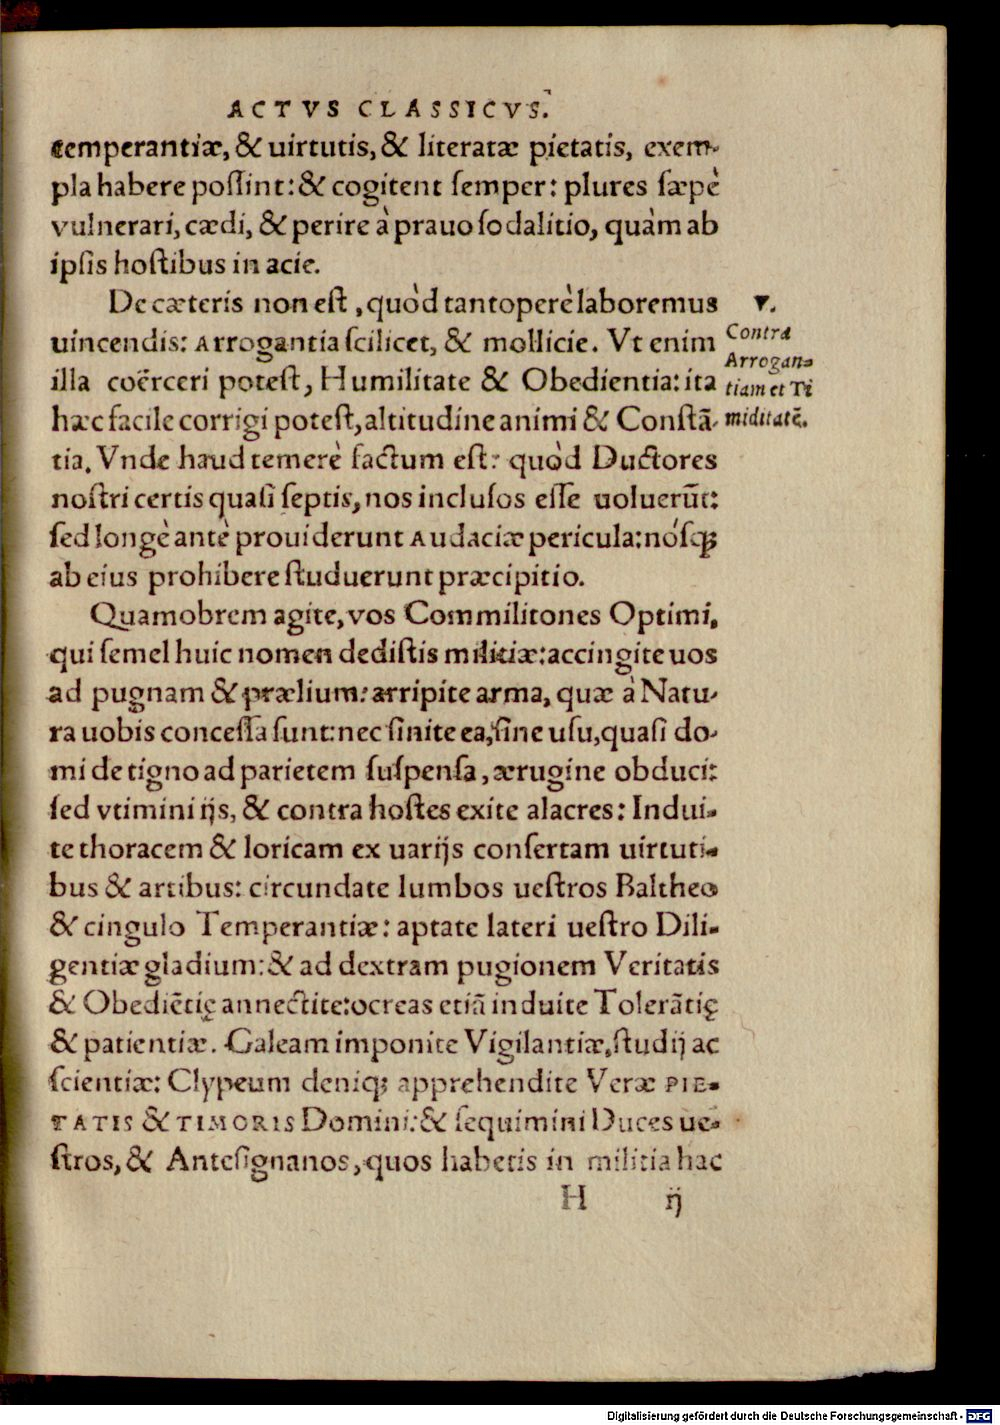 ACTVS CLASSICVS.
temperantiæ, & uirtutis, & literatæ pietatis, exem-
pla habere poſſint: & cogitent ſemper: plures ſæpè
vulnerari, cædi, & perire à prauo ſodalitio, quàm ab
ipſis hoſtibus in acie.
De cæteris non eſt, quòd tantoperè laboremus
uincendis: Arrogantia ſcilicet, & mollicie. Vt enim
illa coërceri poteſt, Humilitate & Obedientia: ita
hæc facile corrigi poteſt, altitudine animi & Conſtã-
tia. Vnde haud temerè factum eſt: quòd Ductores
noſtri certis quaſi ſeptis, nos incluſos eſſe uoluerũt:
ſed longè antè prouiderunt Audaciæ pericula: nóſq;
ab eius prohibere ſtuduerunt præcipitio.
V.
Contra
Arrogan-
tiam et Ti
miditatẽ.
Quamobrem agite, vos Commilitones Optimi,
qui ſemel huic nomen dediſtis militiæ: accingite uos
ad pugnam & prælium: arripite arma, quæ à Natu-
ra uobis conceſſa ſunt: nec ſinite ea, ſine uſu, quaſi do-
mi de tigno ad parietem ſuſpenſa, ærugine obduci:
ſed vtimini ijs, & contra hoſtes exite alacres: Indui-
te thoracem & loricam ex uarijs conſertam uirtuti-
bus & artibus: circundate lumbos ueſtros Baltheo
& cingulo Temperantiæ: aptate lateri ueſtro Dili-
gentiæ gladium: & ad dextram pugionem Veritatis
& Obediẽtię annectite: ocreas etiã induite Tolerãtię
& patientiæ. Galeam imponite Vigilantiæ, ſtudij ac
ſcientiæ: Clypeum deniq; apprehendite Veræ PIE-
TATIS & TIMORIS Domini: & ſequimini Duces ue-
ſtros, & Anteſignanos, quos habetis in militia hac
H ij
Digitalisierung gefördert durch die Deutsche Forschungsgemeinschaft - DFG